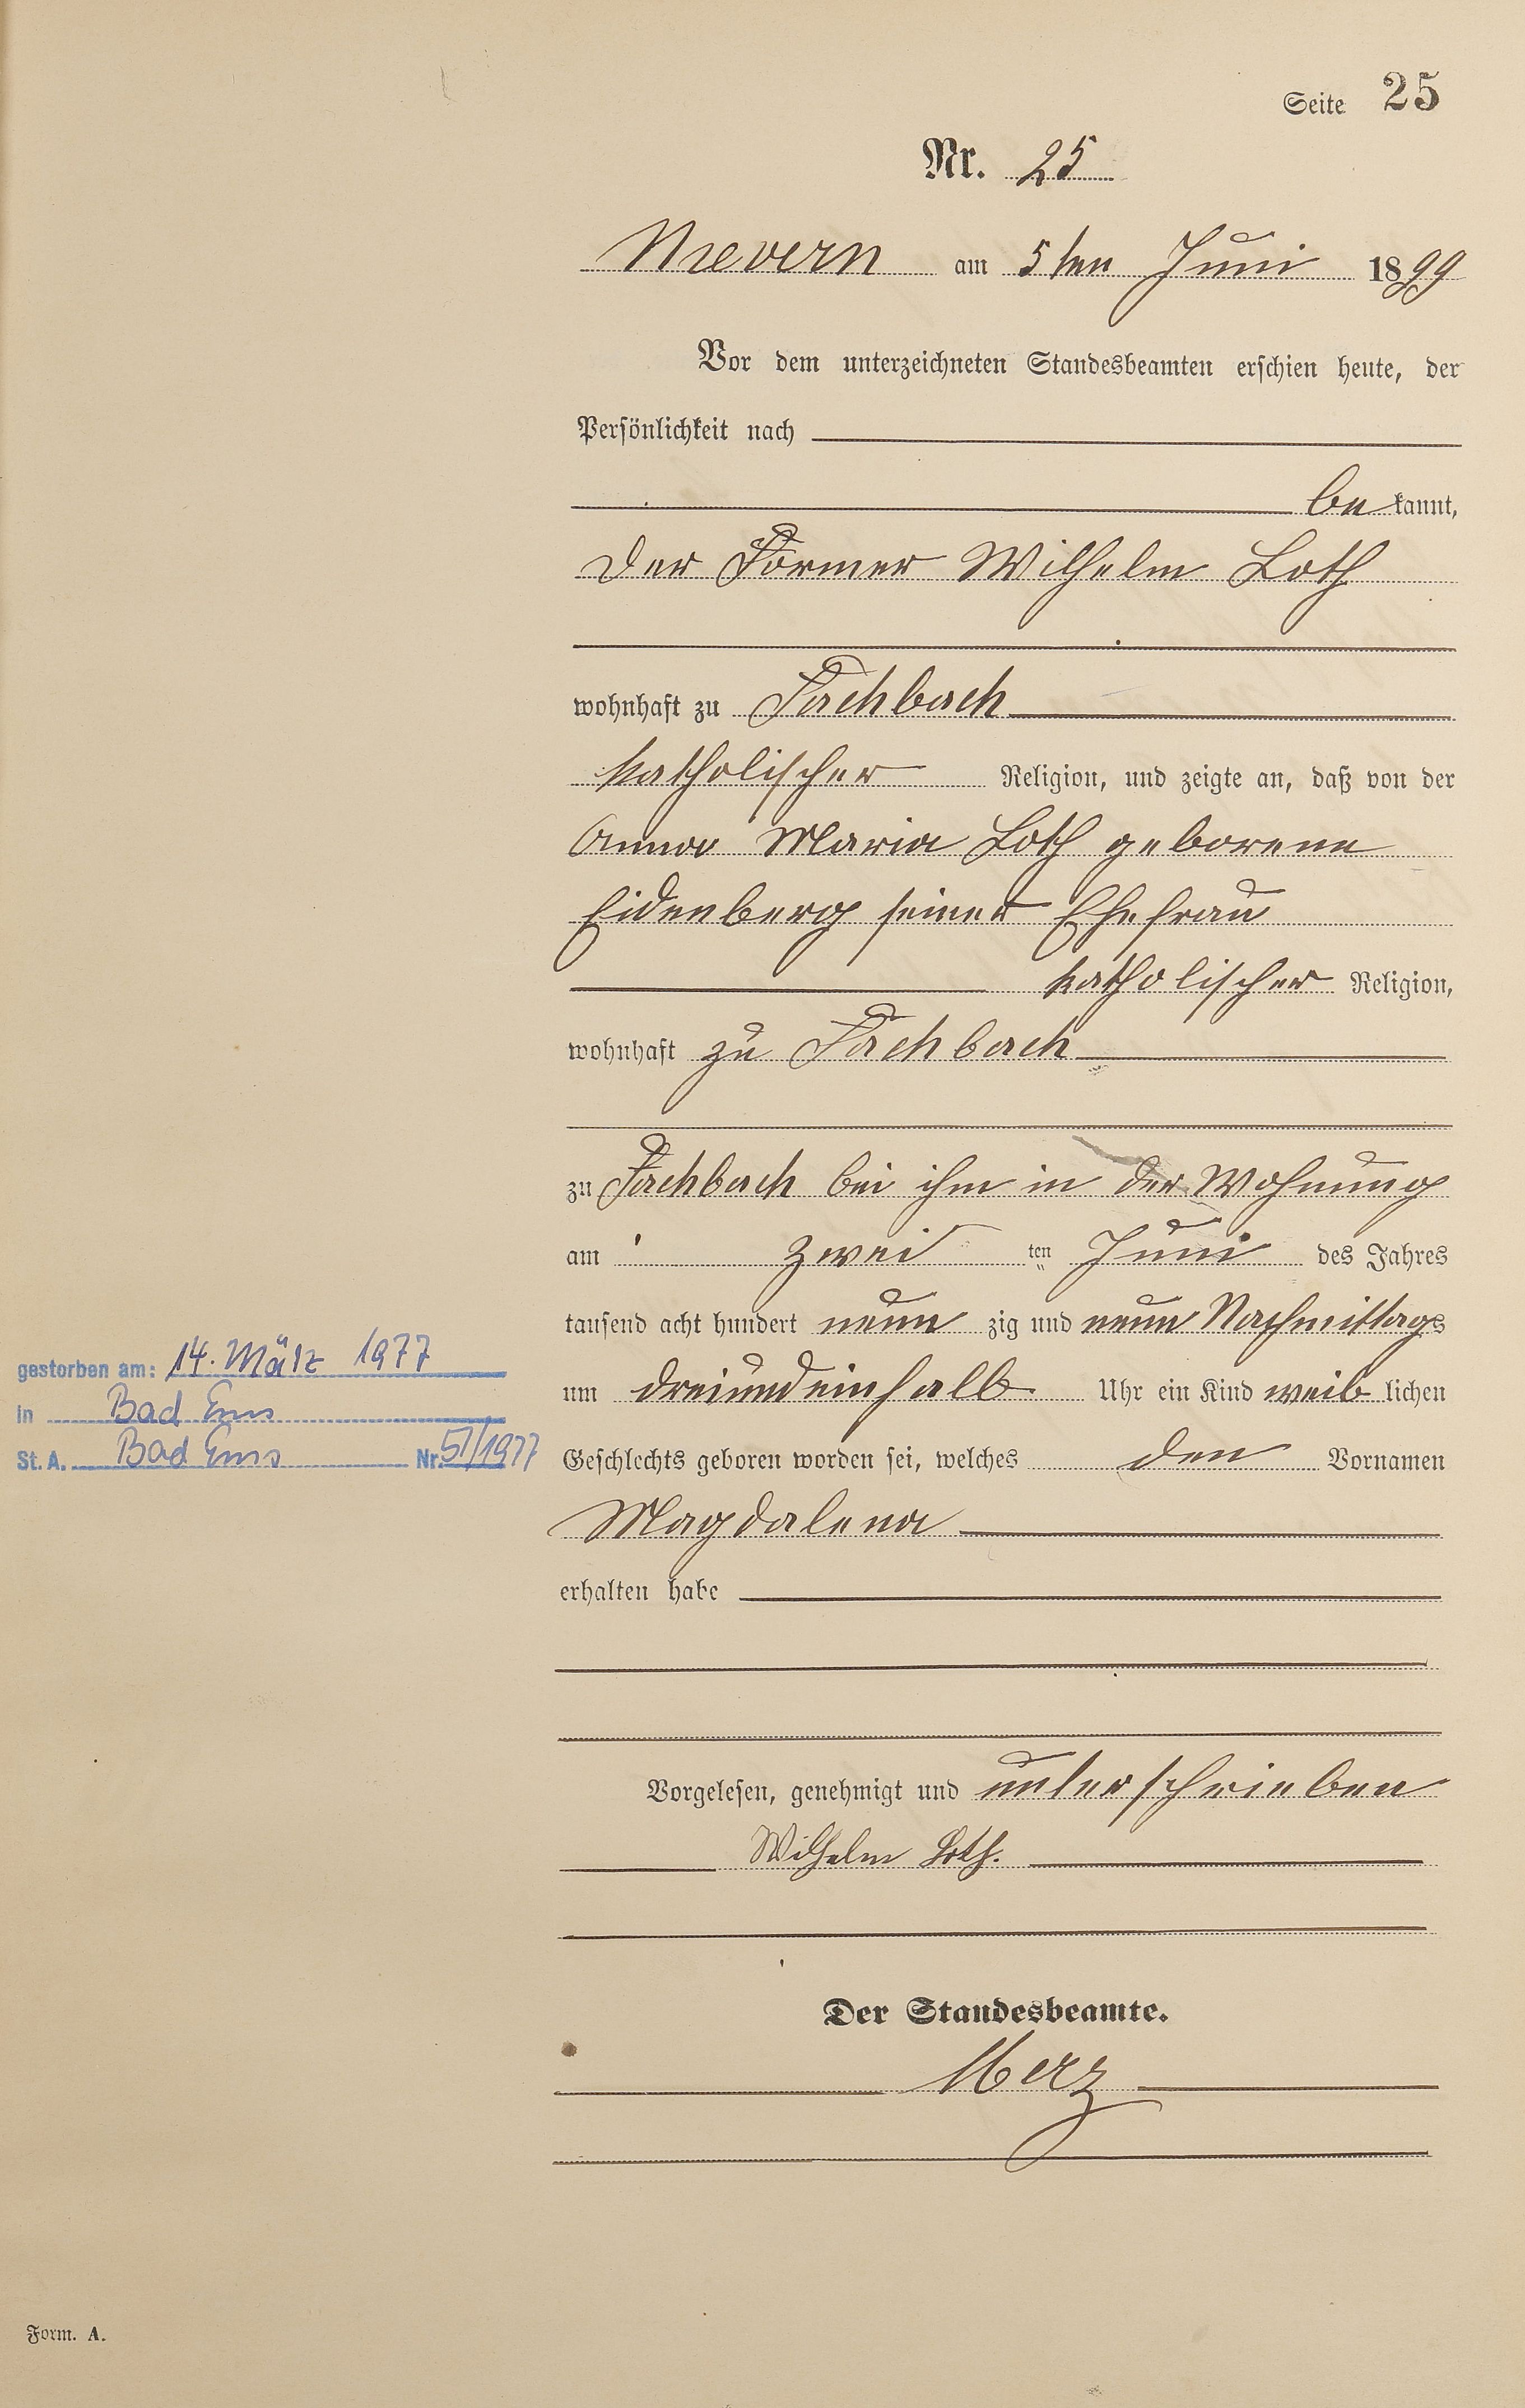 Seite 25
Nr. 25
Nievern am 5ten Juni 1899
Vor dem unterzeichneten Standesbeamten erschien heute, der
Persönlichkeit nach
be kannt,
der Former Wilhelm Loth
wohnhaft zu Fachbach
katholischer Religion, und zeigte an, daß von der
Anna Maria Loth geborene
Eidenberg seiner Ehefrau
katholischer Religion,
wohnhaft zu Fachbach
zu Fachbach bei ihm in der Wohnung
am zwei ten Juni des Jahres
tausend acht hundert neun zig und neun Nachmittags
um dreiundeinhalb Uhr ein Kind weib lichen
Geschlechts geboren worden sei, welches den Vornamen
Magdalena
erhalten habe
gestorben am: 14. März 1977
in Bad Ems
St. A. Bad Ems Nr. 51/1977
Vorgelesen, genehmigt und unterschrieben
Wilhelm Loth.
Der Standesbeamte.
Merz
Form. A.